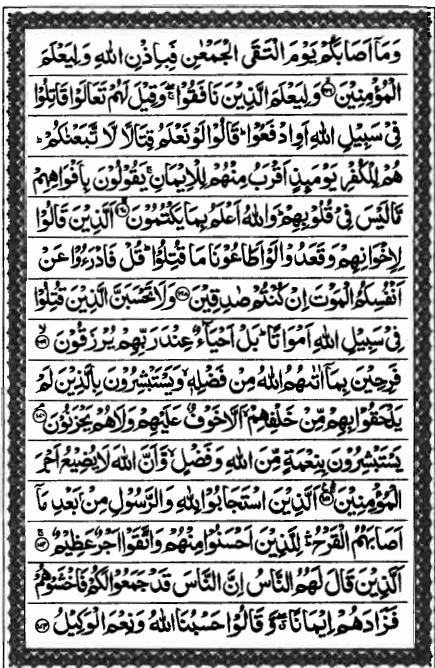 وَمَآ اَصَابَكُمْ يَوْمَ الْتَقَى الْجَمْعٰنِ فَبِاِذْنِ اللّٰهِ وَلِيَعْلَمَ
الْمُؤْمِنِيْنَ ۙ‏﴿۱۶۶﴾ وَلِيَعْلَمَ الَّذِيْنَ نَافَقُوْا ۖۚ وَقِيْلَ لَهُمْ تَعَالَوْا قَاتِلُوْا
فِىْ سَبِيْلِ اللّٰهِ اَوِ ادْفَعُوْا ؕ قَالُوْا لَوْ نَعْلَمُ قِتَالًا لَّا تَّبَعْنٰكُمْ ؕ
هُمْ لِلْكُفْرِ يَوْمَئِذٍ اَقْرَبُ مِنْهُمْ لِلْاِيْمَانِ ۚ يَقُوْلُوْنَ بِاَفْوَاهِهِمْ
مَّا لَيْسَ فِىْ قُلُوْبِهِمْ ؕ وَاللّٰهُ اَعْلَمُ بِمَا يَكْتُمُوْنَ ۚ‏﴿۱۶۷﴾ اَلَّذِيْنَ قَالُوْا
لِاِخْوَانِهِمْ وَقَعَدُوْا لَوْ اَطَاعُوْنَا مَا قُتِلُوْا ؕ قُلْ فَادْرَءُوْا عَنْ
اَنْفُسِكُمُ الْمَوْتَ اِنْ كُنْتُمْ صٰدِقِيْنَ ﴿۱۶۸﴾ وَلَا تَحْسَبَنَّ الَّذِيْنَ قُتِلُوْا
فِىْ سَبِيْلِ اللّٰهِ اَمْوَاتًا ؕ بَلْ اَحْيَآءٌ عِنْدَ رَبِّهِمْ يُرْزَقُوْنَ ۙ‏﴿۱۶۹﴾
فَرِحِيْنَ بِمَآ اٰتٰىهُمُ اللّٰهُ مِنْ فَضْلِهٖ ۙ وَيَسْتَبْشِرُوْنَ بِالَّذِيْنَ لَمْ
يَلْحَقُوْا بِهِمْ مِّنْ خَلْفِهِمْ ۙ اَلَّا خَوْفٌ عَلَيْهِمْ وَلَا هُمْ يَحْزَنُوْنَ ۘ‏﴿۱۷۰﴾
يَسْتَبْشِرُوْنَ بِنِعْمَةٍ مِّنَ اللّٰهِ وَفَضْلٍ ۙ وَّاَنَّ اللّٰهَ لَا يُضِيْعُ اَجْرَ
الْمُؤْمِنِيْنَ ۛۚ‏﴿۱۷۱﴾ اَلَّذِيْنَ اسْتَجَابُوْا لِلّٰهِ وَالرَّسُوْلِ مِنْۢ بَعْدِ مَآ
اَصَابَهُمُ الْقَرْحُ ۛؕ لِلَّذِيْنَ اَحْسَنُوْا مِنْهُمْ وَاتَّقَوْا اَجْرٌ عَظِيْمٌ ۚ‏﴿۱۷۲﴾
اَلَّذِيْنَ قَالَ لَهُمُ النَّاسُ اِنَّ النَّاسَ قَدْ جَمَعُوْا لَكُمْ فَاخْشَوْهُمْ
فَزَادَهُمْ اِيْمَانًا ۖۗ وَّقَالُوْا حَسْبُنَا اللّٰهُ وَنِعْمَ الْوَكِيْلُ ﴿۱۷۳﴾